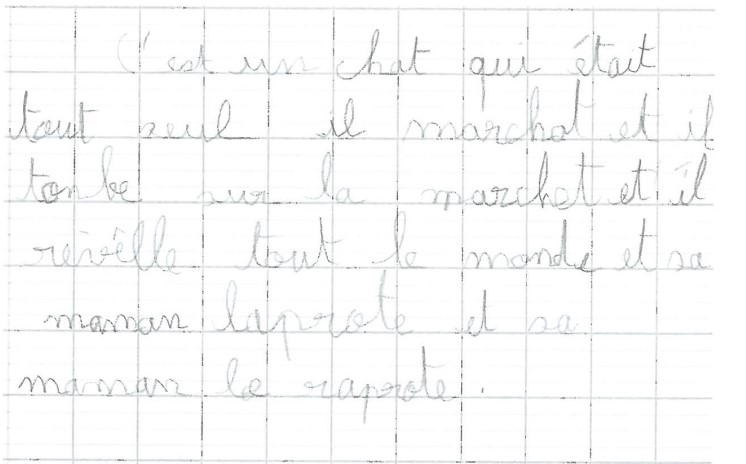 C'est un chat qui était
tout seul il marchat et il
tonbe sur la marchet et il
révélle tout le monde et sa
maman laprote et sa
maman le raprote.